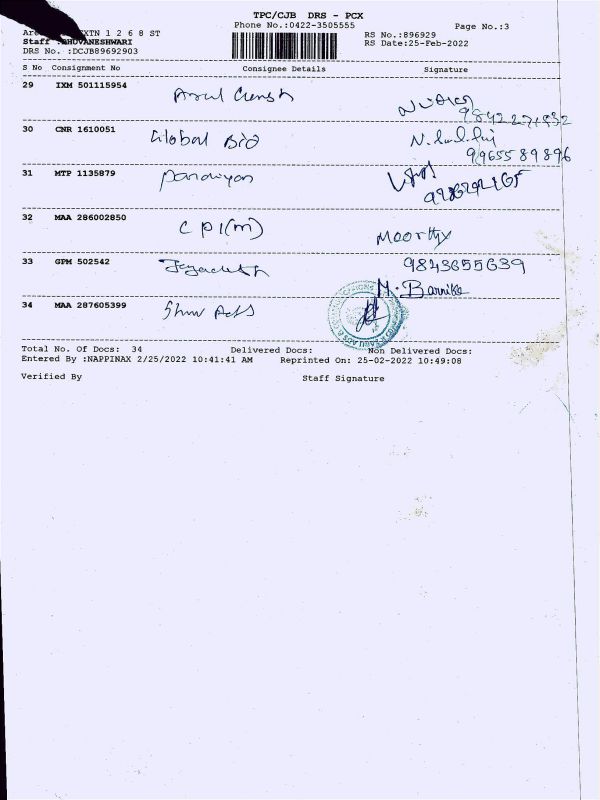 TPC/CJB DRS - PCX
Phone No.:0422-3505555
Page No.:3
EXTN 1 2 6 8 ST
RS No.:896929
Staff BHUVANESHWARI
RS Date:25-Feb-2022
DRS No. :DCJB89692903
S No Consignment No Consignee Details Signature
29 IXM 501115954
30 CNR 1610051 Global Bio
9965589896
31 MTP 1135879 Pandiyan
32 MAA 286002850 C P I (m) Moorthy
33 GPM 502542 9843655639
M. Barnika
34 MAA 287605399
Total No. Of Docs: 34 Delivered Docs: Non Delivered Docs:
Entered By :NAPPINAX 2/25/2022 10:41:41 AM Reprinted On: 25-02-2022 10:49:08
Verified By Staff Signature